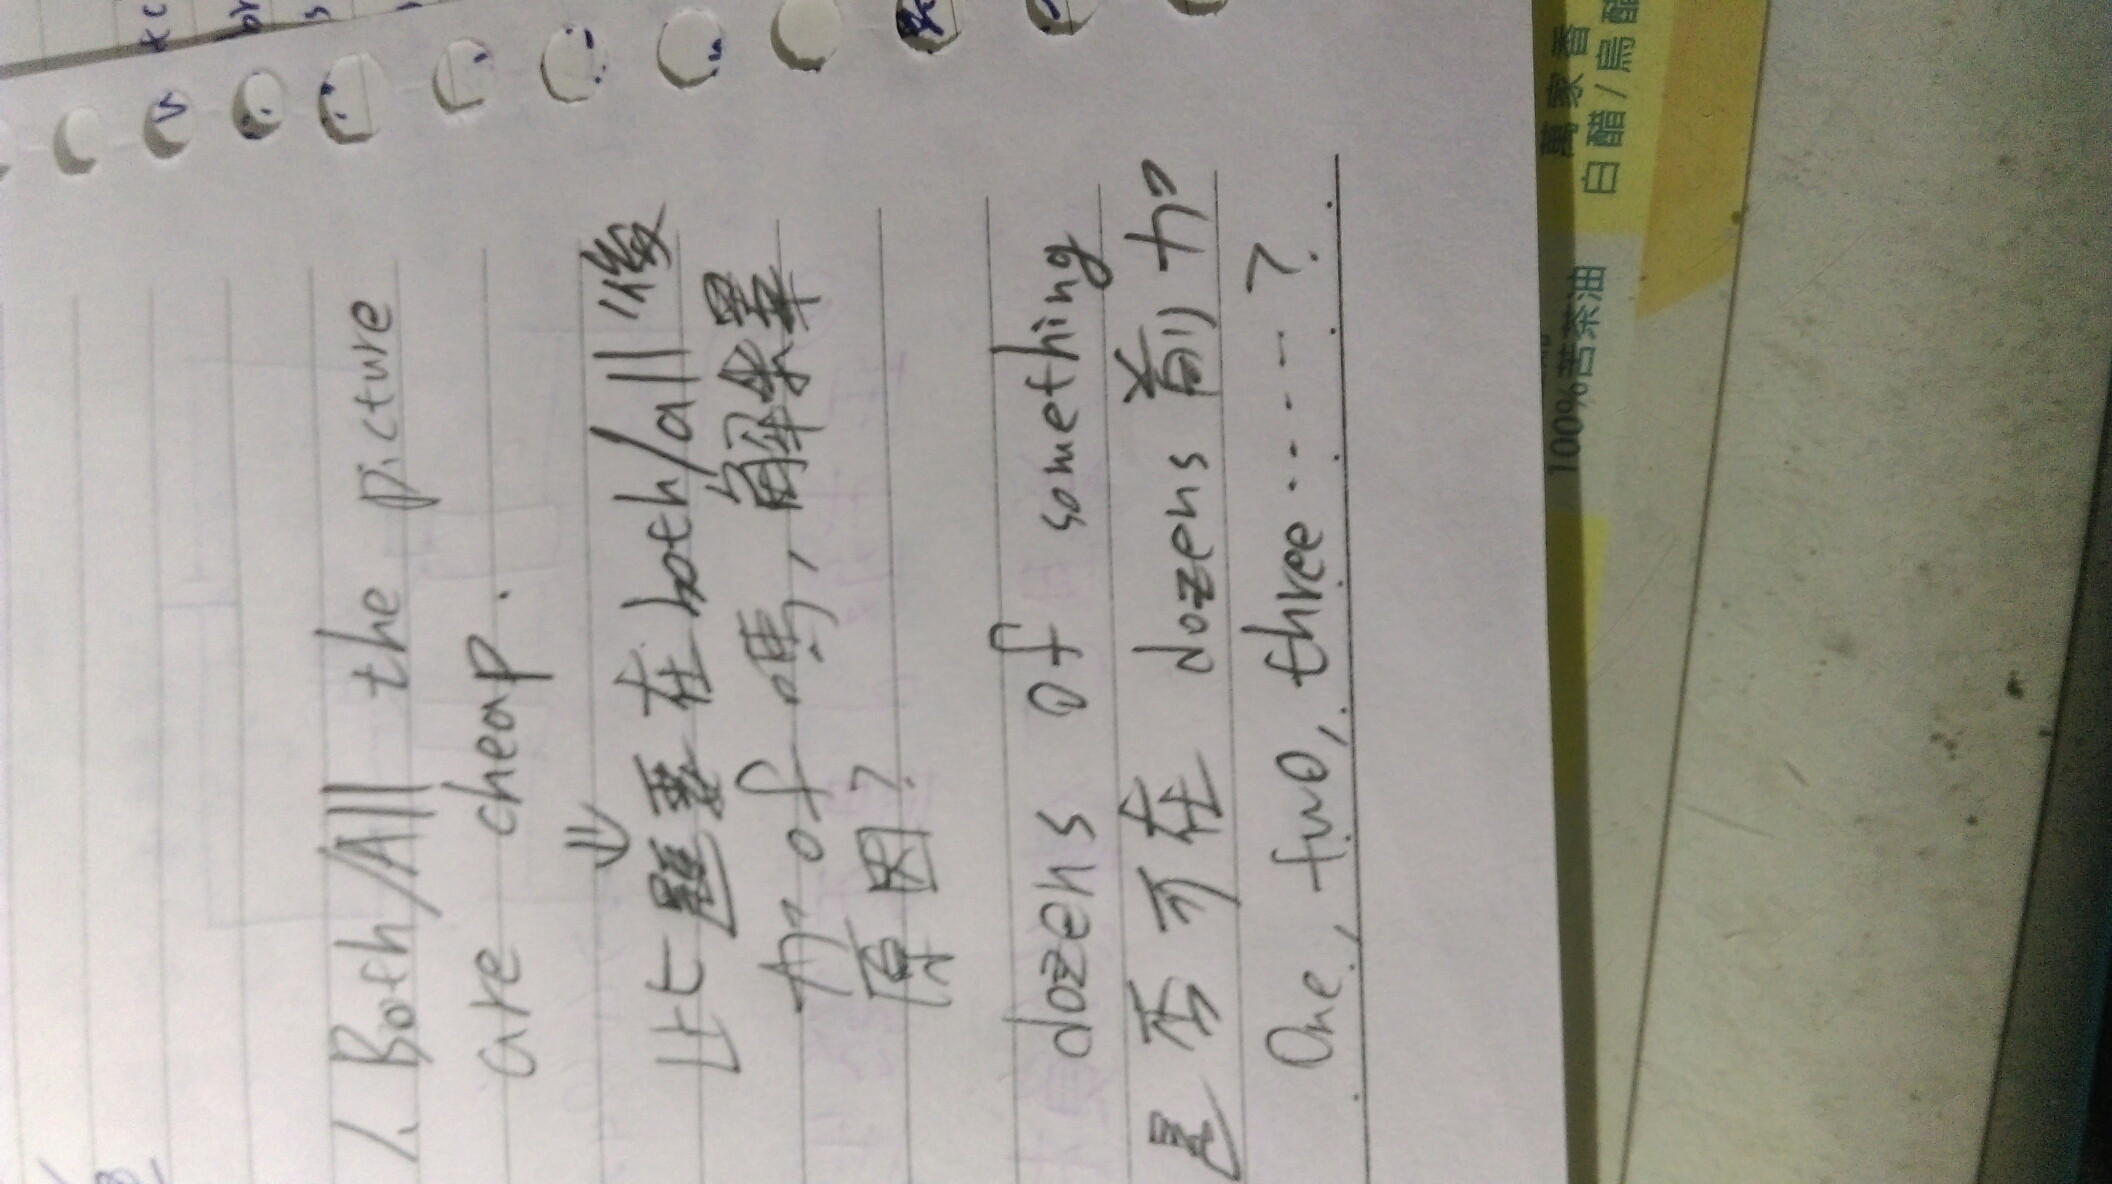 1. Both/All the picture
are cheap.
⇓
此題要在both/all後
加of嗎,解釋
原因?
dozens of something
是否可在dozens前加
One, two, three.....?
萬家香
白醋/烏醋
100%苦茶油